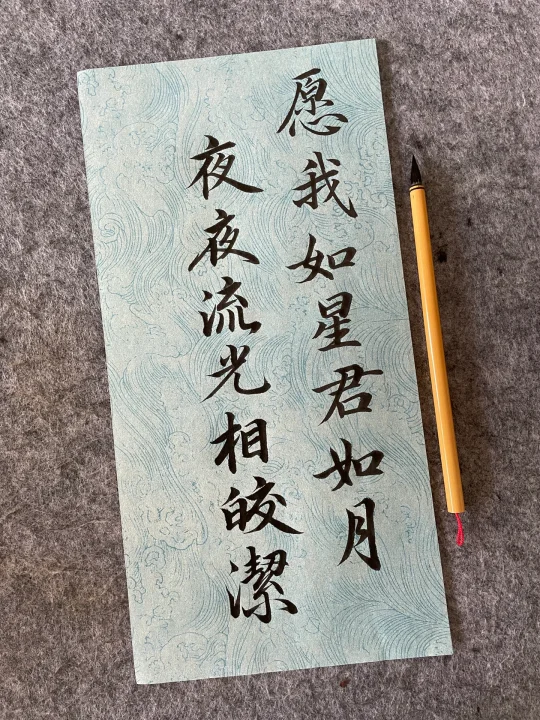 愿我如星君如月
夜夜流光相皎潔